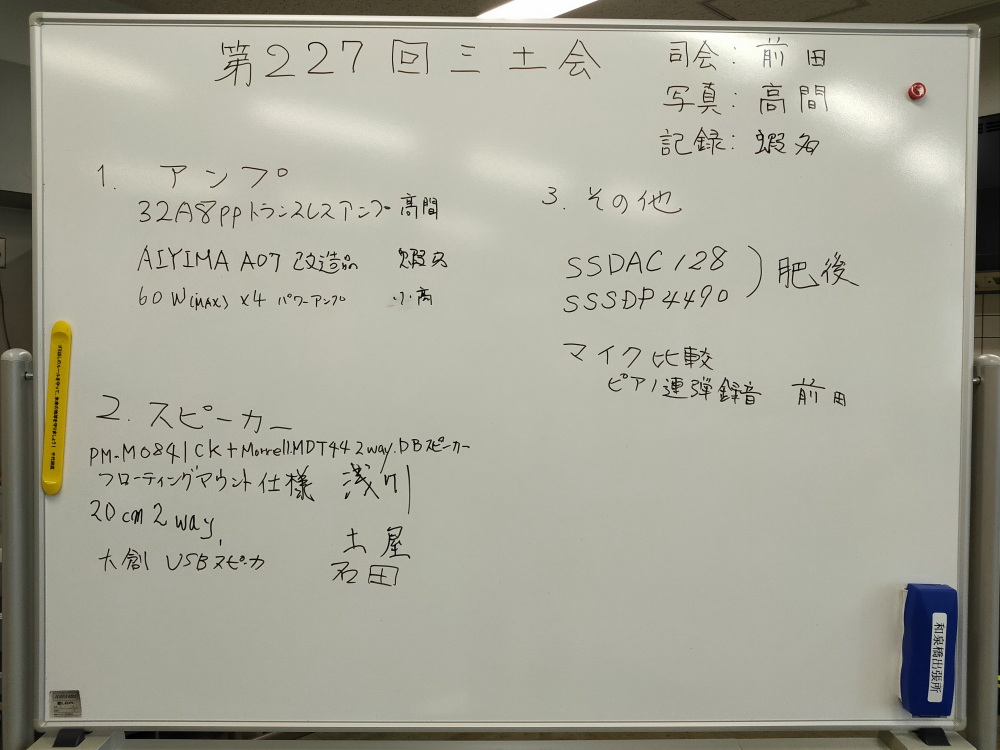 第227回三土会
司会: 前田
写真: 高間
記録: 蝦名
1. アンプ
32A8ppトランスレスアンプ 高間
AIYIMA A07 改造品 蝦名
60W(MAX) x4 パワーアンプ 小高
2. スピーカー
PM-M0841CK+Morrell.MDT44 2way.DBスピーカー
フローティングマウント仕様 浅川
20cm 2way 土屋
大創 USBスピーカ 石田
3. その他
SSDAC128
SSSDP4490 ) 肥後
マイク比較
ピアノ連弾録音 前田
和泉橋出張所